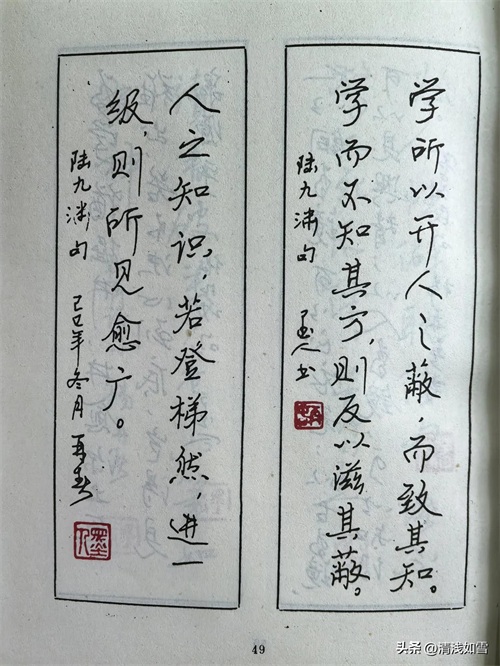 学所以开人之蔽，而致其知。
学而不知其方，则反以滋其蔽。
陆九渊句
玉人书
人之知识，若登梯然，进一
级，则所见愈广。
陆九渊句 己巳年冬月
49
头条 @清浅如雪